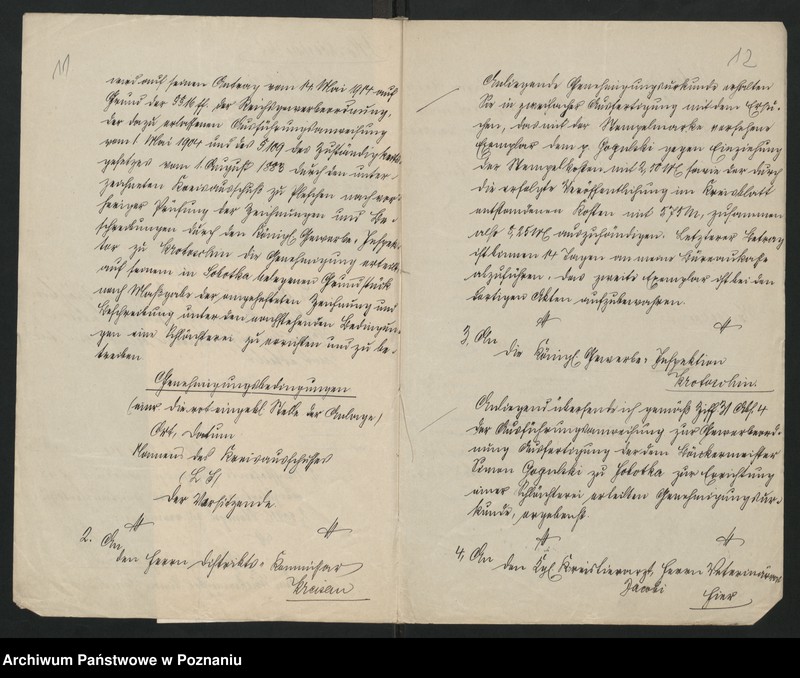 11
wird auf seinen Antrag vom 14 Mai 1904 auf
Grund der §§ 16 ff. der Reichsgewerbeordnung,
der dazu erlassenen Ausführungsanweisung
vom 1. Mai 1904 und des § 109 des Zuständigkeits-
gesetzes vom 1. August 1883 durch den unter-
zeichneten Kreisausschuß zu Pleschen nach vor-
heriger Prüfung der Zeichnungen und Be-
schreibungen durch den Königl. Gewerbe-Inspek-
tor zu Krotoschin die Genehmigung erteilt,
auf seinem in Sobotka belegenen Grundstück
nach Maßgabe der angehefteten Zeichnung und
Beschreibung unter den nachstehenden Bedingun-
gen eine Schlächterei zu errichten und zu be-
treiben
Genehmigungsbedingungen
(nur die rot eingekl. Stelle der Anlage)
Ort, Datum
Namens des Kreisausschusses
(L S)
Der Vorsitzende
2. An
den Herrn Distrikts-Kommissar
12
Anliegende Genehmigungsurkunde erhalten
Sie in zweifacher Ausfertigung mit dem Ersu-
chen, das mit der Stempelmarke versehene
Exemplar dem p. Gogulski gegen Einziehung
der Stempelkosten mit 2,50 M sowie der durch
die erfolgte Veröffentlichung im Kreisblatt
entstandenen Kosten mit 5,75 M, zusammen
also 8,25 M auszuhändigen. Letzterer Betrag
ist binnen 14 Tagen an meine Büreaukasse
abzuführen. Das zweite Exemplar ist bei den
dortigen Akten aufzubewahren
3, An
die Königl. Gewerbe-Inspektion
Krotoschin.
Anliegend übersende ich gemäß Ziff 31 Abs. 4
der Ausführungsanweisung zur Gewerbeord-
nung Ausfertigung der dem Bäckermeister
Simon Gogulski zu Sobotka zur Errichtung
einer Schlächterei erteilten Genehmigungsur-
kunde, ergebenst
4, An
den Kgl. Kreistierarzt, Herrn Veterinärrat
Jacobi
hier
Archiwum Państwowe w Poznaniu